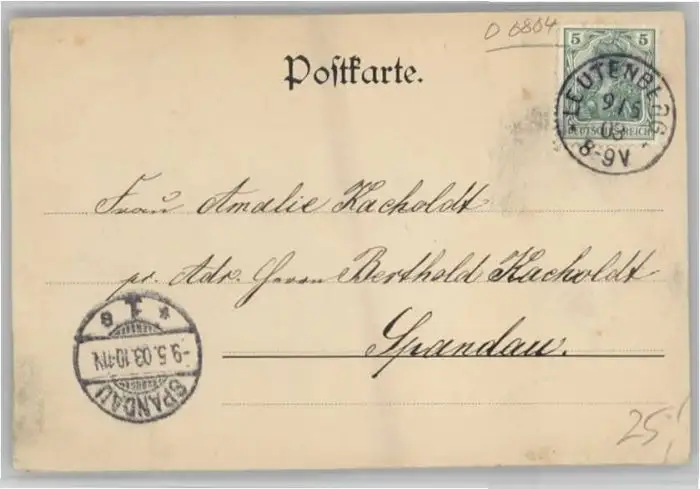 D 6804
5 5
DEUTSCHES REICH
LEUTENBERG
9/5
03
8-9V
Postkarte.
Frau Amalie Kacholdt
pr. Adr. Herrn Berthold Kacholdt
Spandau.
* 1 e
-9.5.03.10-11V
SPANDAU
25,-